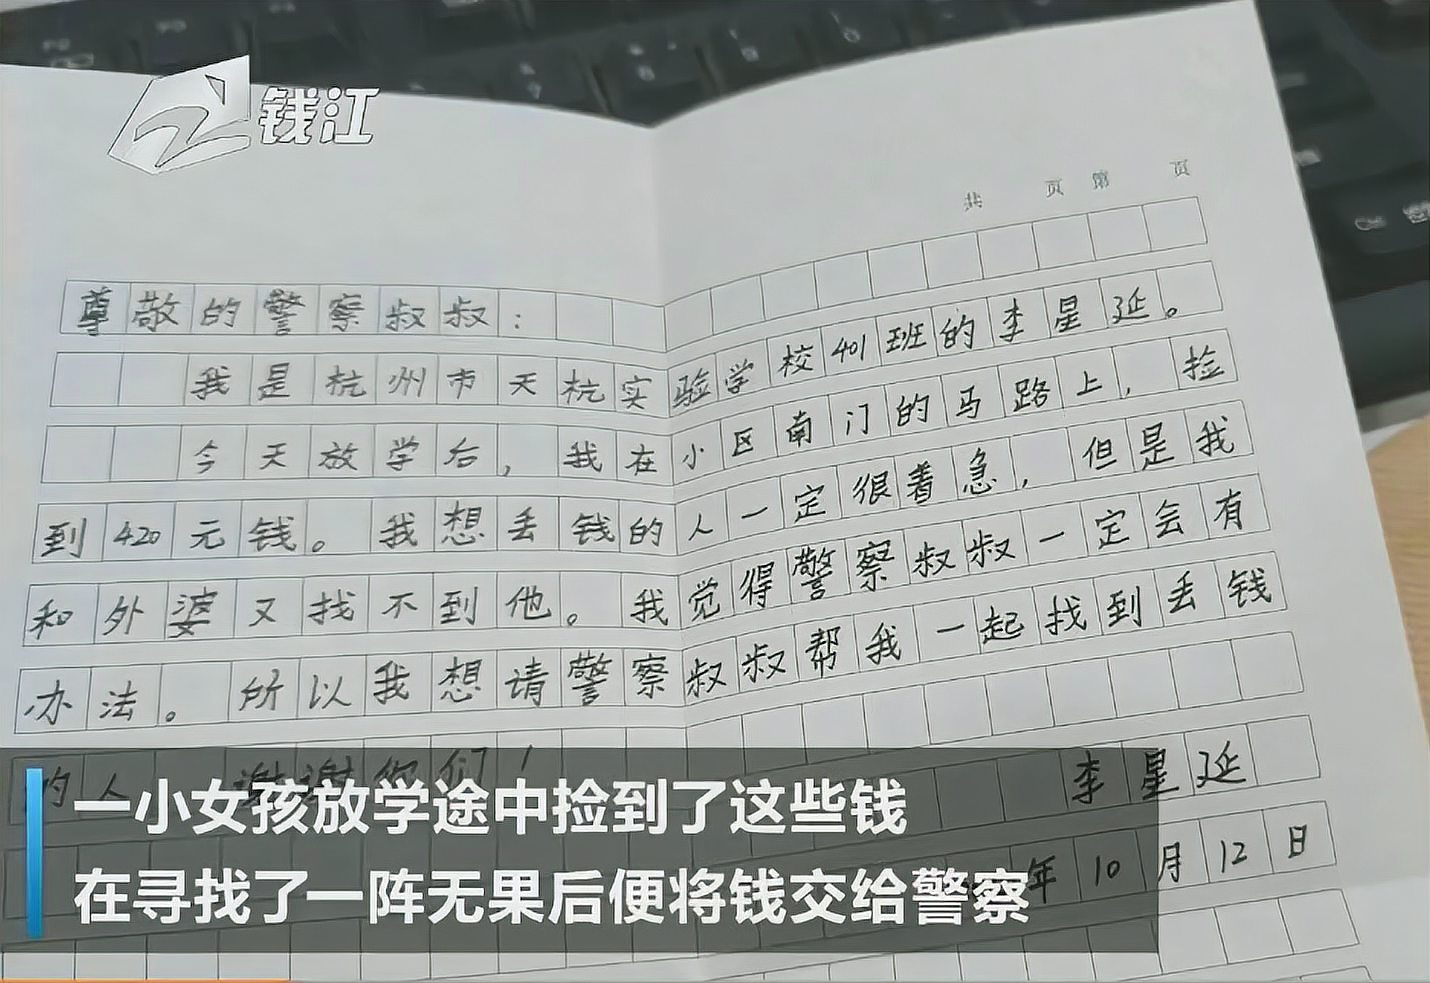 钱江
共 页 第 页
尊敬的警察叔叔：
我是杭州市天杭实验学校401班的李星延。
今天放学后，我在小区南门的马路上，捡
到420元钱。我想丢钱的人一定很着急，但是我
和外婆又找不到他。我觉得警察叔叔一定会有
办法。所以我想请警察叔叔帮我一起找到丢钱
的人 谢谢你们！
李星延
年10月12日
一小女孩放学途中捡到了这些钱
在寻找了一阵无果后便将钱交给警察